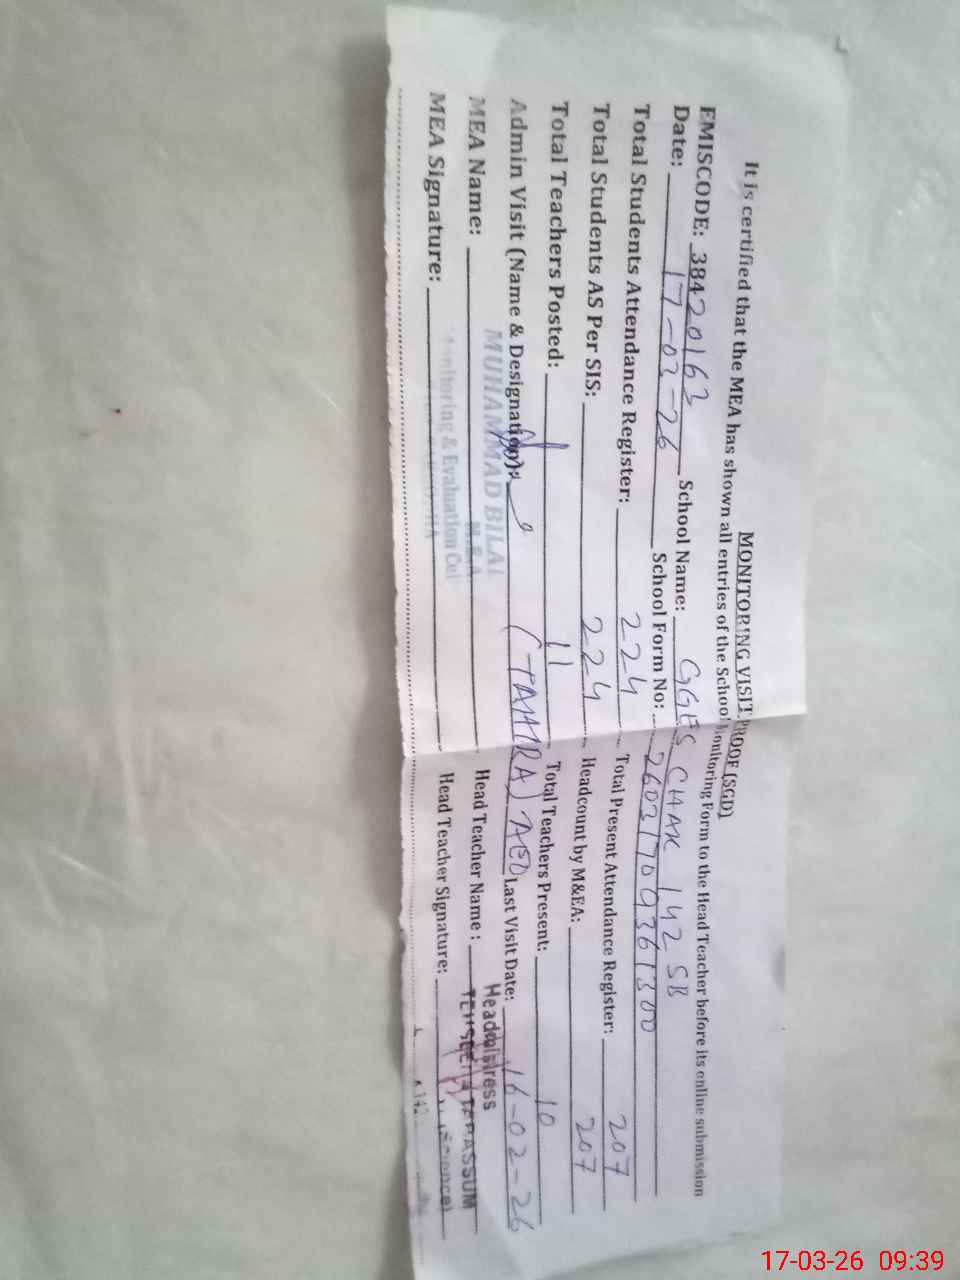 MONITORING VISIT PROOF (SGD)
It is certified that the MEA has shown all entries of the School Monitoring Form to the Head Teacher before its online submission
EMISCODE: 38420162 School Name: GGES CHAK 142 SB
Date: 17-03-26 School Form No: 26031709361300
Total Students Attendance Register: 224 Total Present Attendance Register: 207
Total Students AS Per SIS: 224 Headcount by M&EA: 207
Total Teachers Posted: 11 Total Teachers Present: 10
Admin Visit (Name & Designation): (TAHIRA) AEO Last Visit Date: 16-02-26
MEA Name: MUHAMMAD BILAL Head Teacher Name: Headmistress
M.E.A. TABASSUM
MEA Signature: Monitoring & Evaluation Cell Head Teacher Signature:
17-03-26 09:39